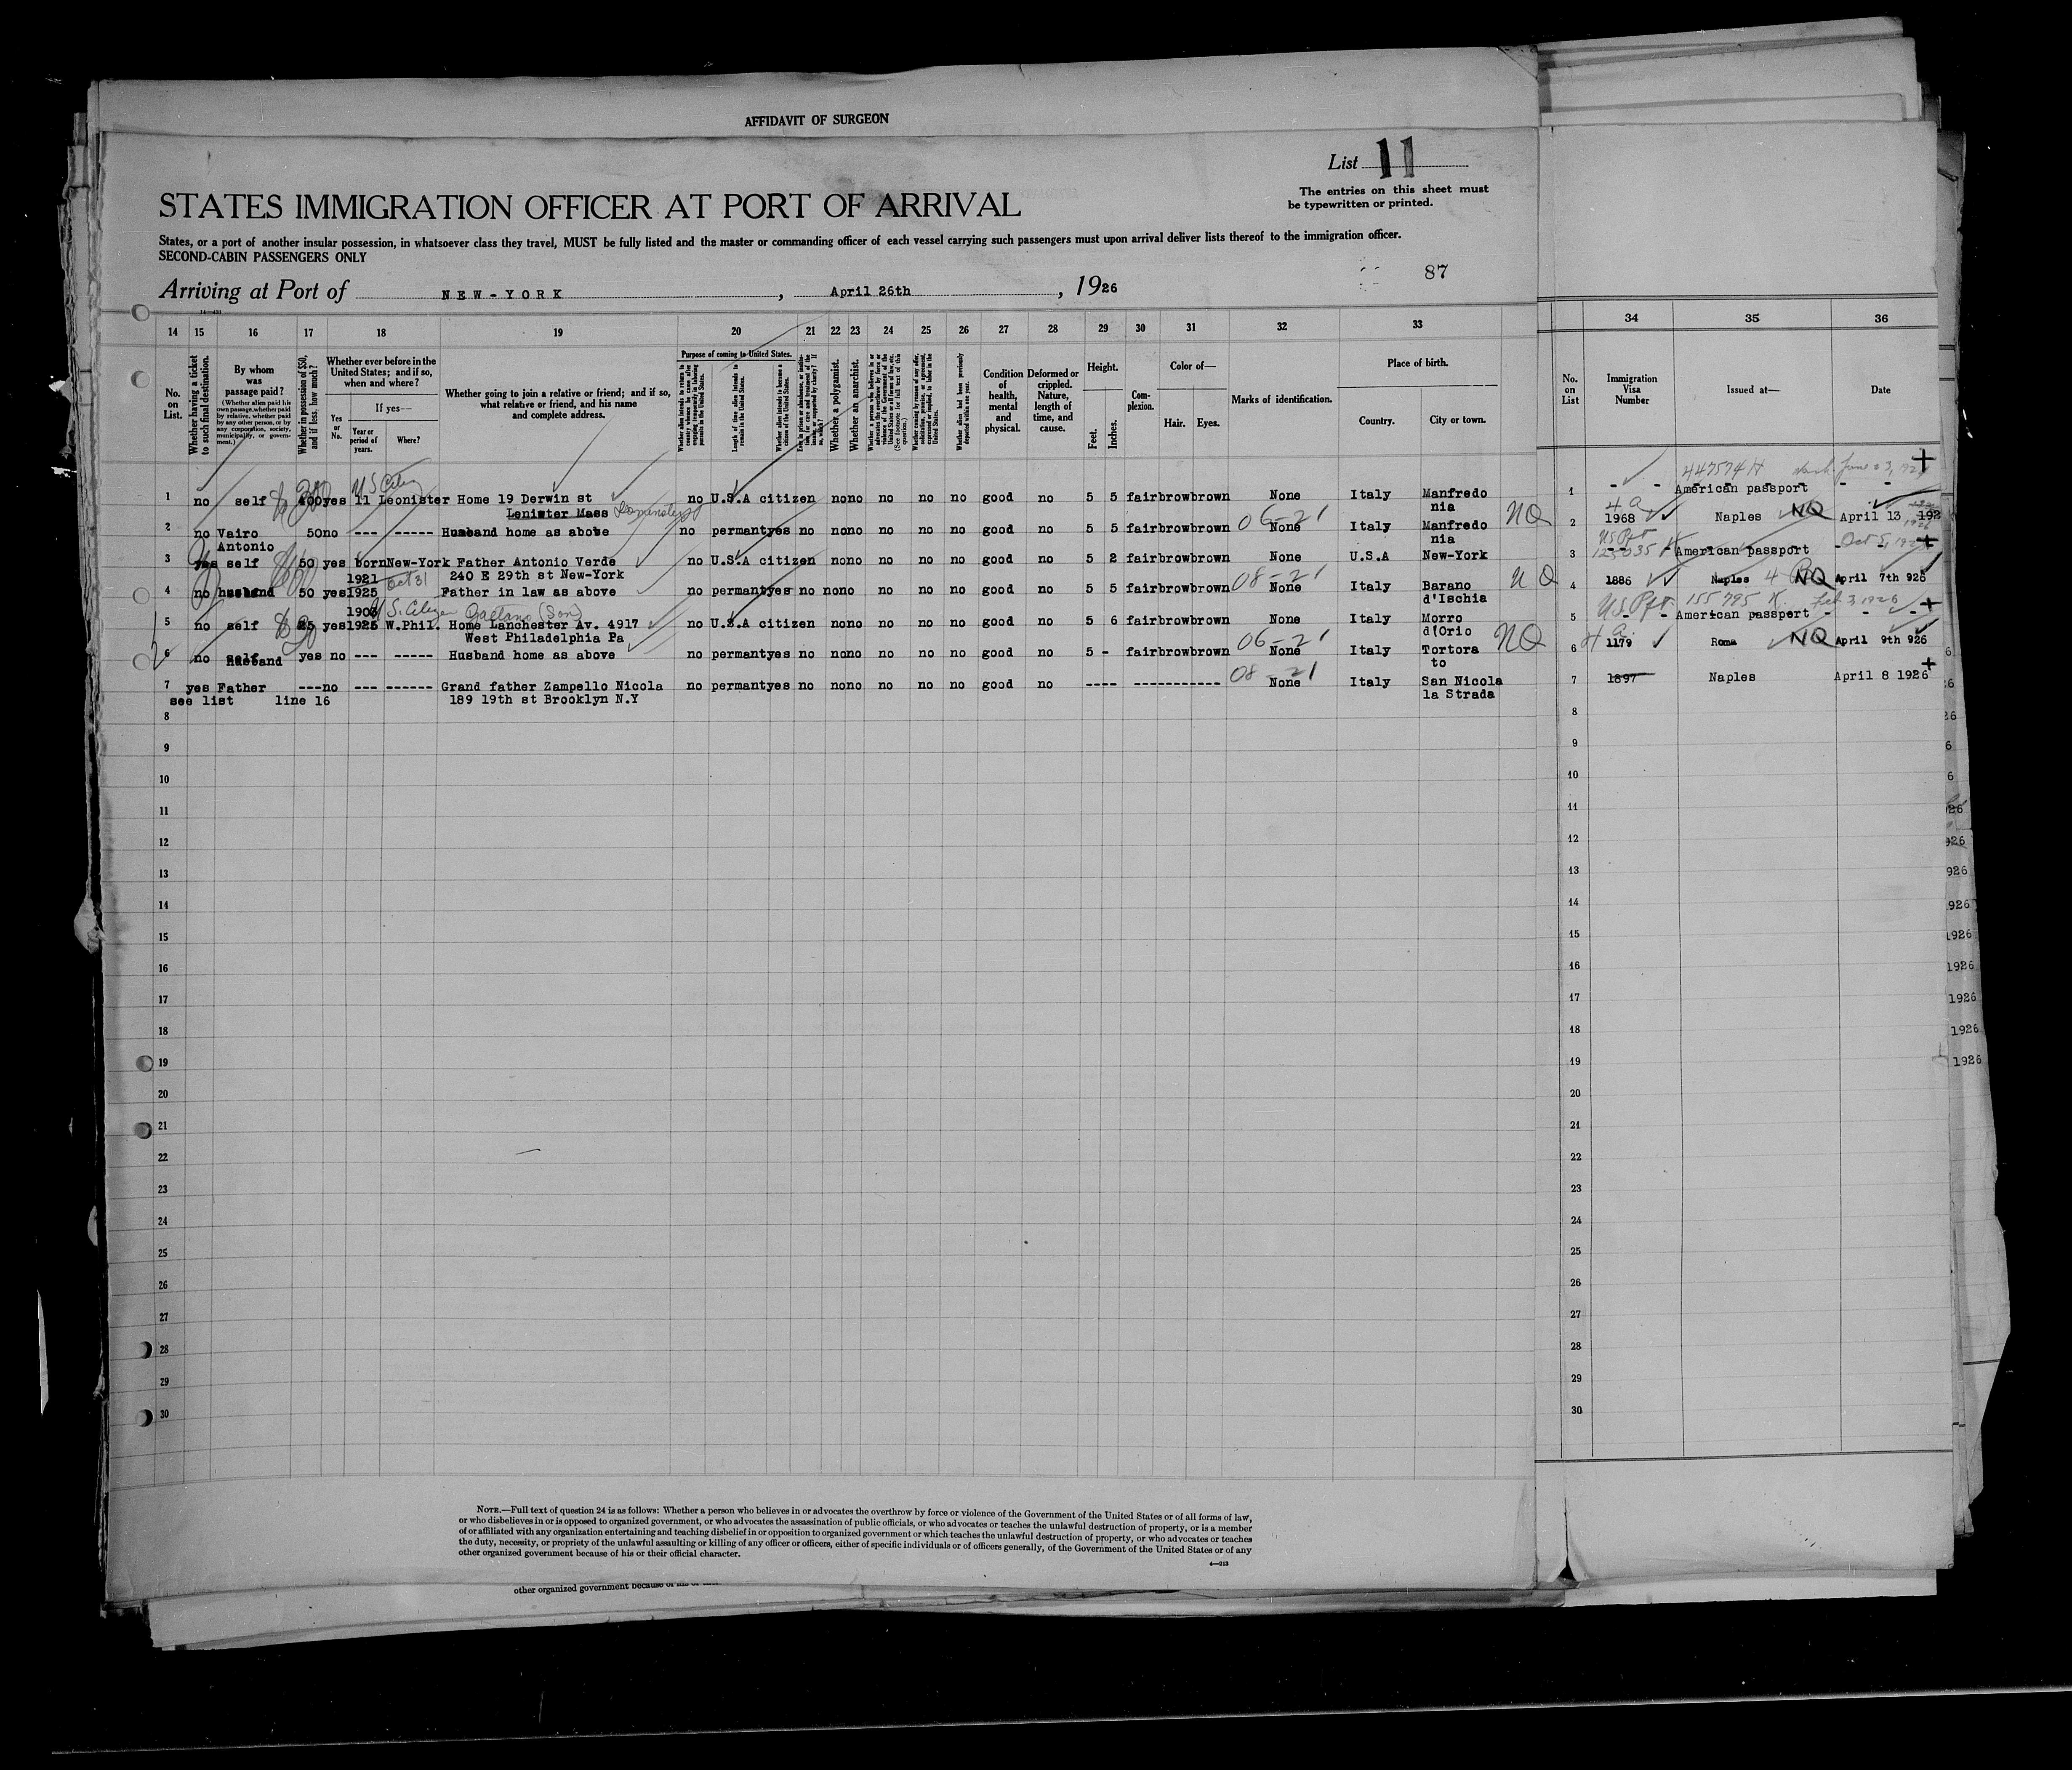 AFFIDAVIT OF SURGEON
List 11
The entries on this sheet must
be typewritten or printed.
STATES IMMIGRATION OFFICER AT PORT OF ARRIVAL
States, or a port of another insular possession, in whatsoever class they travel, MUST be fully listed and the master or commanding officer of each vessel carrying such passengers must upon arrival deliver lists thereof to the immigration officer.
SECOND-CABIN PASSENGERS ONLY
87
Arriving at Port of NEW-YORK, April 26th, 1926
14 15 16 17 18 19 20 21 22 23 24 25 26 27 28 29 30 31 32 33 34 35 36
No. on List.
Whether having a ticket to such final destination.
By whom was passage paid?
(Whether alien paid his own passage, whether paid by relative, whether paid by any other person, or by any corporation, society, municipality, or government.)
Whether in possession of $50, and if less, how much?
Whether ever before in the United States; and if so, when and where?
Yes or No.
If yes—
Year or period of years.
Where?
Whether going to join a relative or friend; and if so, what relative or friend, and his name and complete address.
Purpose of coming to United States.
Length of time alien intends to remain in the United States.
Whether a polygamist.
Whether an anarchist.
Condition of health, mental and physical.
Deformed or crippled. Nature, length of time, and cause.
Height.
Feet.
Inches.
Complexion.
Color of—
Hair.
Eyes.
Marks of identification.
Place of birth.
Country.
City or town.
No. on List
Immigration Visa Number
Issued at—
Date
447574 H
U S Citizen
1 no self 400 yes 11 Leonister Home 19 Derwin st no U.S.A citizen no no no no no good no 5 5 fair brow brown None Italy Manfredo 1 - - - American passport - - -
Lenister Mass Leominster nia
4 a
2 no Vairo 50 no --- ----- Husband home as above no permant yes no no no no no no good no 5 5 fair brow brown 06-21 None Italy Manfredo NQ 2 1968 Naples NQ April 13 192
Antonio nia
3 yes self 50 yes born New-York Father Antonio Verde no U.S.A citizen no no no no no good no 5 2 fair brow brown None U.S.A New-York 3 American passport Oct 5,
1921 Oct 31 240 E 29th st New-York
4 no husband 50 yes 1925 Father in law as above no permant yes no no no no no no good no 5 5 fair brow brown 08-21 None Italy Barano NQ 4 1886 Naples NQ April 7th 926
d'Ischia
U.S. Citizen Gaetano (Son) US Ppt 155795 K. Feb 3, 1926
5 no self 25 yes 1925 W.Phil. Home Lanchester Av. 4917 no U.S.A citizen no no no no no good no 5 6 fair brow brown None Italy Morro 5 - - - American passport - - -
West Philadelphia Pa d'Orio
6 no Husband yes no --- ----- Husband home as above no permant yes no no no no no no good no 5 - fair brow brown 06-21 None Italy Tortora NQ 6 1179 Roma NQ April 9th 926
to
7 yes Father --- no --- ------ Grand father Zampello Nicola no permant yes no no no no no no good no ---- ----------- 08-21 None Italy San Nicola 7 1897 Naples April 8 1926
see list line 16 189 19th st Brooklyn N.Y la Strada
8 8
9 9
10 10
11 11
12 12
13 13
14 14
15 15
16 16
17 17
18 18
19 19
20 20
21 21
22 22
23 23
24 24
25 25
26 26
27 27
28 28
29 29
30 30
NOTE.—Full text of question 24 is as follows: Whether a person who believes in or advocates the overthrow by force or violence of the Government of the United States or of all forms of law,
or who disbelieves in or is opposed to organized government, or who advocates the assassination of public officials, or who advocates or teaches the unlawful destruction of property, or is a member
of or affiliated with any organization entertaining and teaching disbelief in or opposition to organized government or which teaches the unlawful destruction of property, or who advocates or teaches
the duty, necessity, or propriety of the unlawful assaulting or killing of any officer or officers, either of specific individuals or of officers generally, of the Government of the United States or of any
other organized government because of his or their official character.